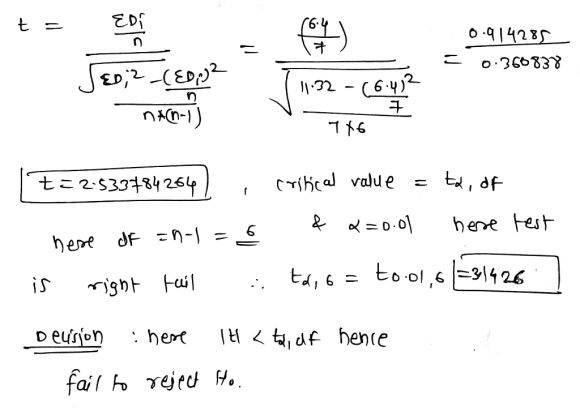 t = ΣDi/n / √((ΣDi² - (ΣDi)²/n) / (n*(n-1))) = (6.4/7) / √((11.32 - (6.4)²/7) / (7*6)) = 0.914285 / 0.360838
t = 2.533784264 , critical value = tα, df
here df = n-1 = 6 & α = 0.01 here test
is right tail ∴ tα, 6 = t0.01, 6 = 31426
Decision : here |t| < tα, df hence
fail to reject H0.